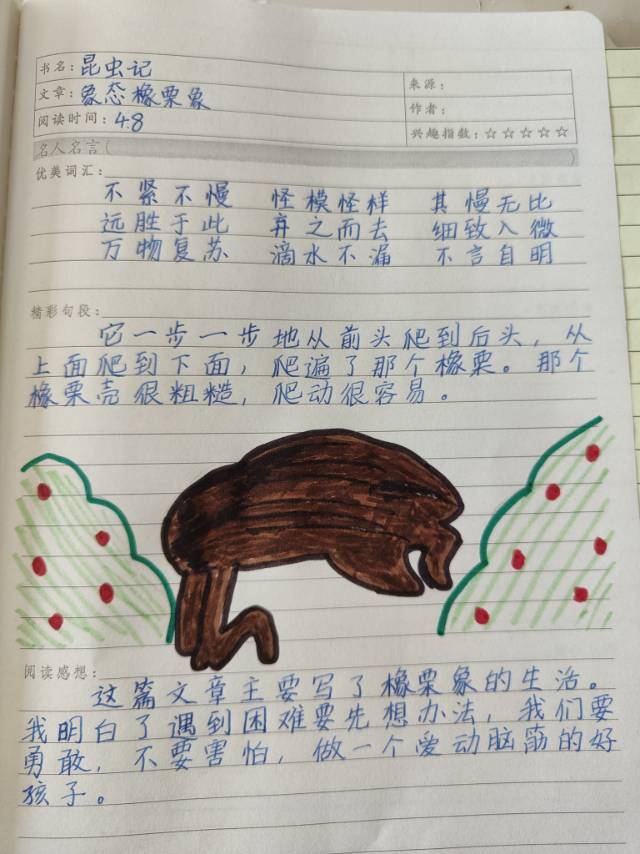 书名：昆虫记
文章：象态橡栗象
来源：
作者：
阅读时间：4.8
兴趣指数：☆☆☆☆☆
名人名言(                    )
优美词汇：
不紧不慢 怪模怪样 其慢无比
远胜于此 弃之而去 细致入微
万物复苏 滴水不漏 不言自明
精彩句段：
它一步一步地从前头爬到后头，从
上面爬到下面，爬遍了那个橡栗。那个
橡栗壳很粗糙，爬动很容易。
阅读感想：
这篇文章主要写了橡栗象的生活。
我明白了遇到困难要先想办法，我们要
勇敢，不要害怕，做一个爱动脑筋的好
孩子。